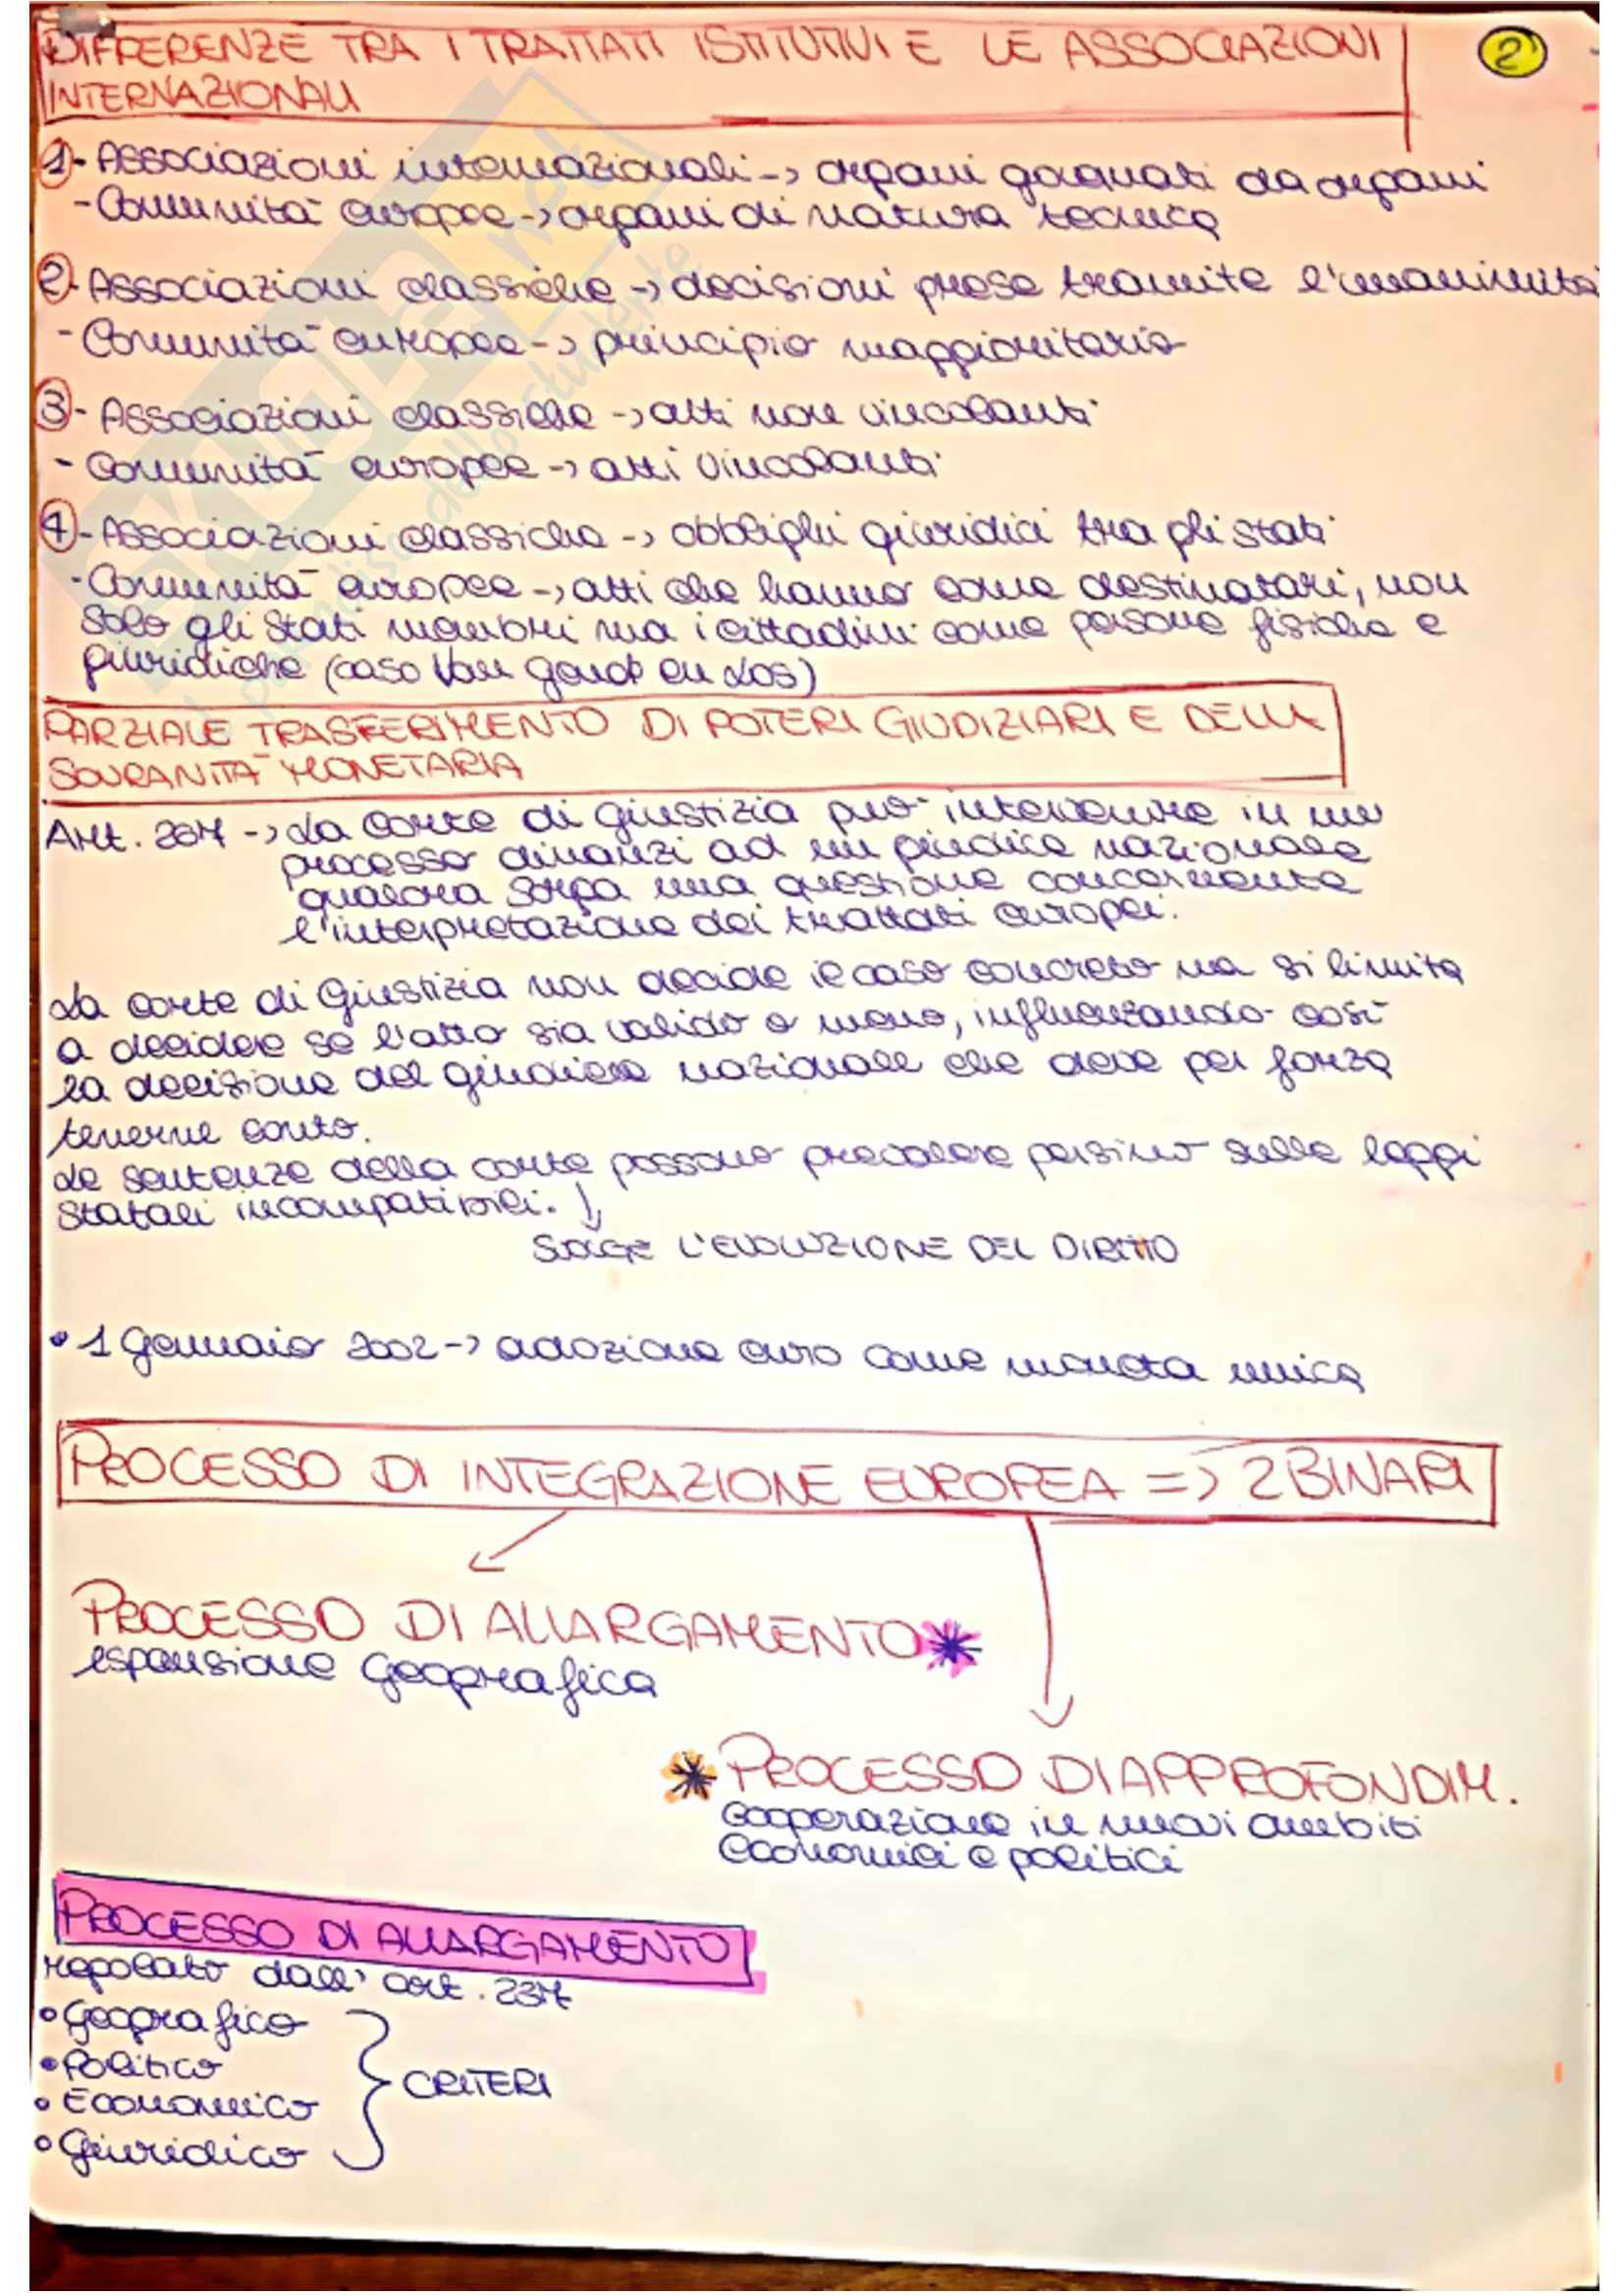 DIFFERENZE TRA I TRATTATI ISTITUTIVI E LE ASSOCIAZIONI
2
INTERNAZIONALI
1 - Associazioni internazionali -> organi da organi
- Comunità europee -> organi di natura tecnica
2 - Associazioni classiche -> decisioni prese tramite l'unanimità
- Comunità europee -> principio maggioritario
3 - Associazioni classiche -> atti non vincolanti
- Comunità europee -> atti vincolanti
4 - Associazioni classiche -> obblighi giuridici tra gli stati
- Comunità europee -> atti che hanno come destinatari, non
solo gli Stati membri ma i cittadini come persone fisiche e
giuridiche (caso Van gend en Los)
PARZIALE TRASFERIMENTO DI POTERI GIUDIZIARI E DELLA
SOVRANITÀ MONETARIA
Art. 267 -> La corte di giustizia può intervenire in un
processo dinanzi ad un giudice nazionale
qualora sorga una questione concernente
l'interpretazione dei trattati europei.
La corte di Giustizia non decide il caso concreto ma si limita
a decidere se l'atto sia valido o meno, influenzando così
la decisione del giudice nazionale che deve per forza
tenerne conto.
Le sentenze della corte possono prevalere persino sulle leggi
statali incompatibili.
SORGE L'EVOLUZIONE DEL DIRITTO
• 1 Gennaio 2002 -> adozione euro come moneta unica
PROCESSO DI INTEGRAZIONE EUROPEA => 2 BINARI
PROCESSO DI ALLARGAMENTO *
espansione geografica
* PROCESSO DI APPROFONDIM.
cooperazione in nuovi ambiti
economici e politici
PROCESSO DI ALLARGAMENTO
regolato dall' art. 237
• Geografico
• Politico
CRITERI
• Economico
• Giuridico